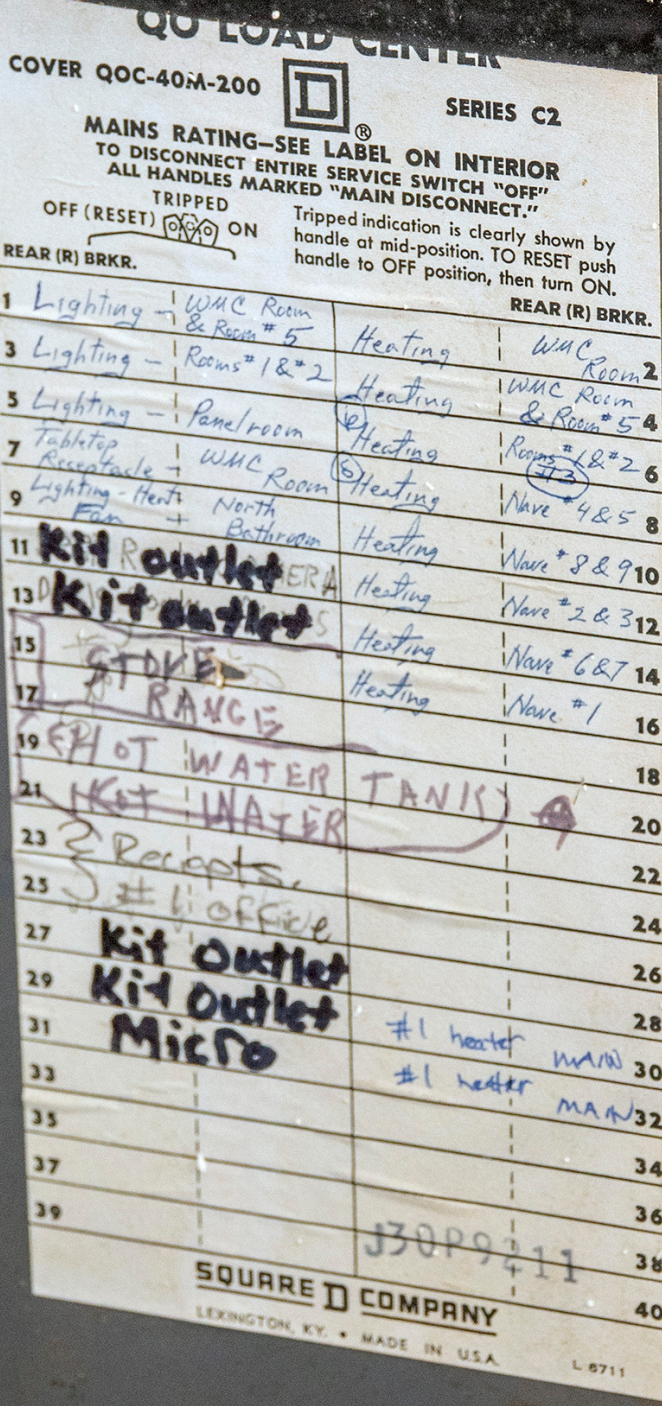 QO LOAD CENTER
COVER QOC-40M-200
D ®
SERIES C2
MAINS RATING—SEE LABEL ON INTERIOR
TO DISCONNECT ENTIRE SERVICE SWITCH "OFF"
ALL HANDLES MARKED "MAIN DISCONNECT."
TRIPPED
OFF (RESET) ON
Tripped indication is clearly shown by
handle at mid-position. TO RESET push
handle to OFF position, then turn ON.
REAR (R) BRKR.
REAR (R) BRKR.
1 Lighting - WMC Room
& Room #5
Heating WMC
Room 2
3 Lighting - Rooms #1 & #2
Heating WMC Room
& Room #5 4
5 Lighting - Panelroom
6 Heating Rooms #1 & #2
#3 6
7 Tabletop
Receptacle - WMC Room
8 Heating Nave #4 & 5 8
9 Lighting - Heat
Fan + North
Bathroom
Heating Nave #8 & 9 10
11 Kit outlet
Heating Nave #2 & 3 12
13 Kit outlet
Heating Nave #6 & 7 14
15 STOVE
Heating Nave #1 16
17 RANGE
18
19 HOT WATER TANK
20
21 HOT WATER
22
23 Recepts.
24
25 #1 office
26
27 Kit Outlet
28
29 Kit Outlet
#1 heater MAIN 30
31 Micro
#1 heater MAIN 32
33
34
35
36
37
38
39
40
J30P9211
SQUARE D COMPANY
LEXINGTON, KY. • MADE IN U.S.A.
L 6711